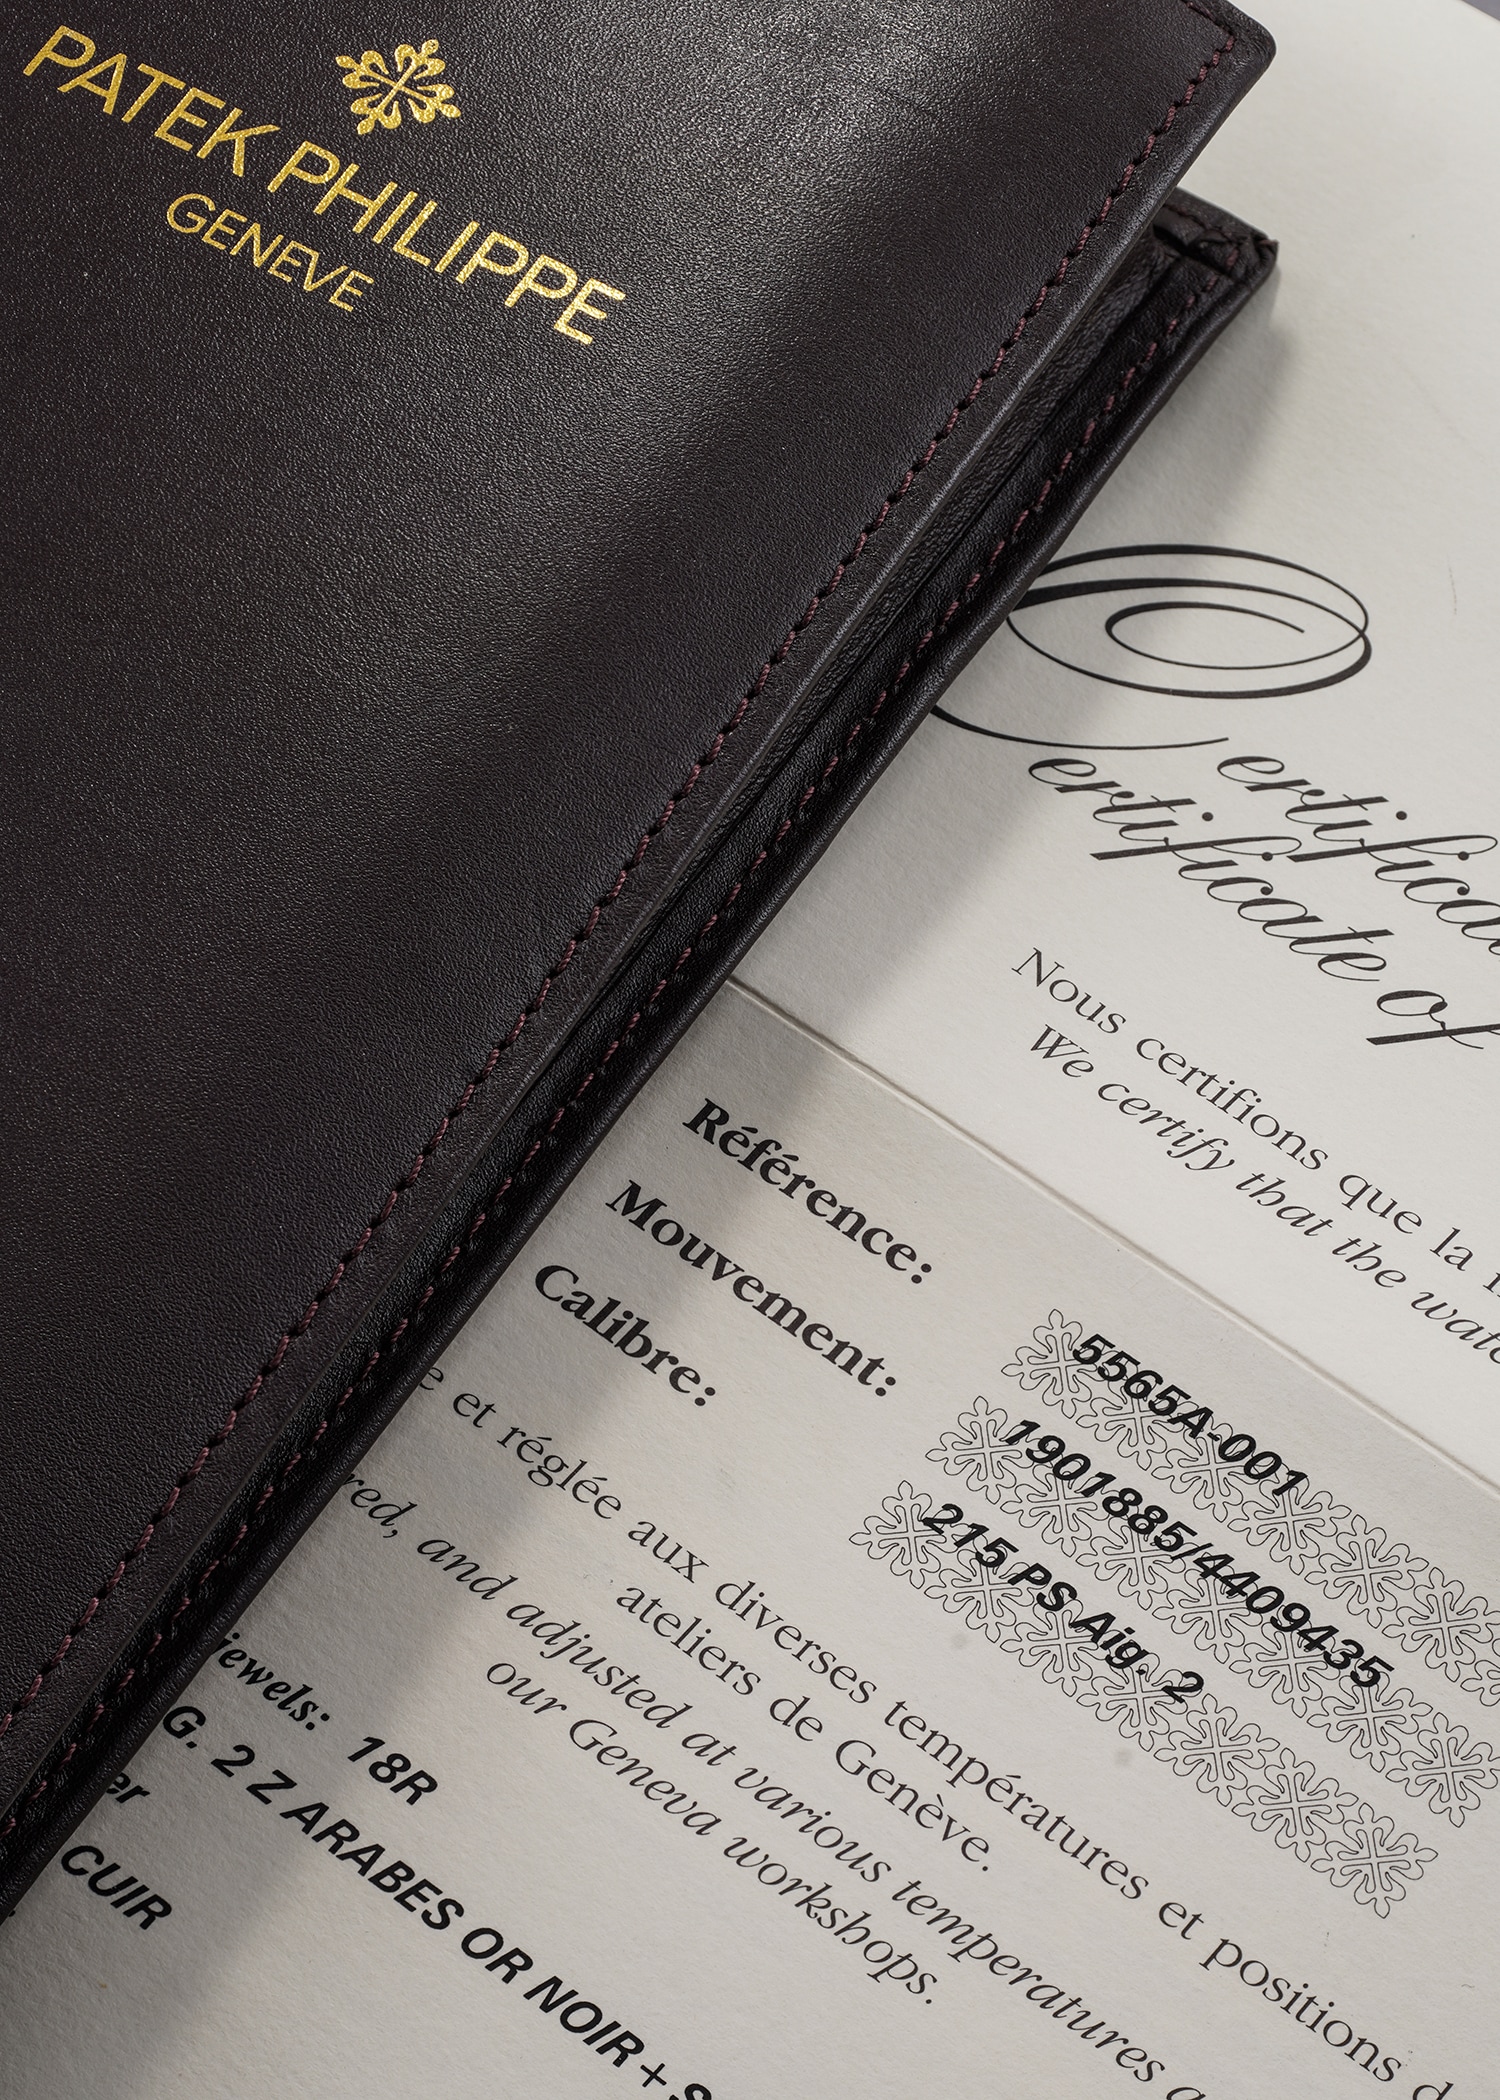 PATEK PHILIPPE
GENEVE
Certificate of
Nous certifions que la
We certify that the
Référence: 5565A-001
Mouvement: 1901885/4409435
Calibre: 215 PS Aig. 2
et réglée aux diverses températures et positions
ateliers de Genève.
and adjusted at various temperatures
our Geneva workshops.
jewels: 18R
G. 2 Z ARABES OR NOIR+S
er
CUIR